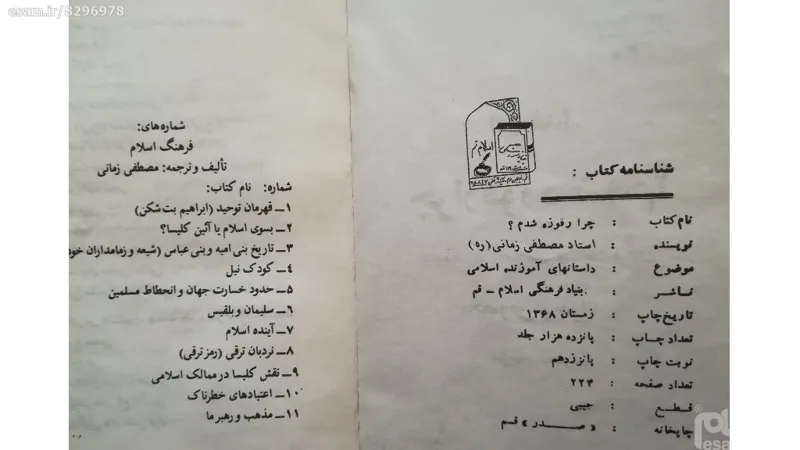 esam.ir/8296978
شناسنامه کتاب :
نام کتاب : چرا رفوزه شدم؟
نویسنده : استاد مصطفی زمانی (ره)
موضوع : داستانهای آموزنده اسلامی
ناشر : بنیاد فرهنگی اسلام ــ قم
تاریخ چاپ : زمستان ۱۳۶۸
تعداد چاپ : پانزده هزار جلد
نوبت چاپ : پانزدهم
تعداد صفحه : ۲۲۴
قطع : جیبی
چاپخانه : «صدر» قم
شماره‌های:
فرهنگ اسلام
تألیف و ترجمه: مصطفی زمانی
شماره: نام کتاب:
۱ــ قهرمان توحید (ابراهیم بت‌شکن)
۲ــ بسوی اسلام یا آئین کلیسا؟
۳ــ تاریخ بنی امیه و بنی عباس (شیعه و زمامداران خود
۴ــ کودک نیل
۵ــ حدود خسارت جهان و انحطاط مسلمین
۶ــ سلیمان و بلقیس
۷ــ آینده اسلام
۸ــ نردبان ترقی (رمز ترقی)
۹ــ نقش کلیسا در ممالک اسلامی
۱۰ــ اعتیادهای خطرناک
۱۱ــ مذهب و رهبر ما